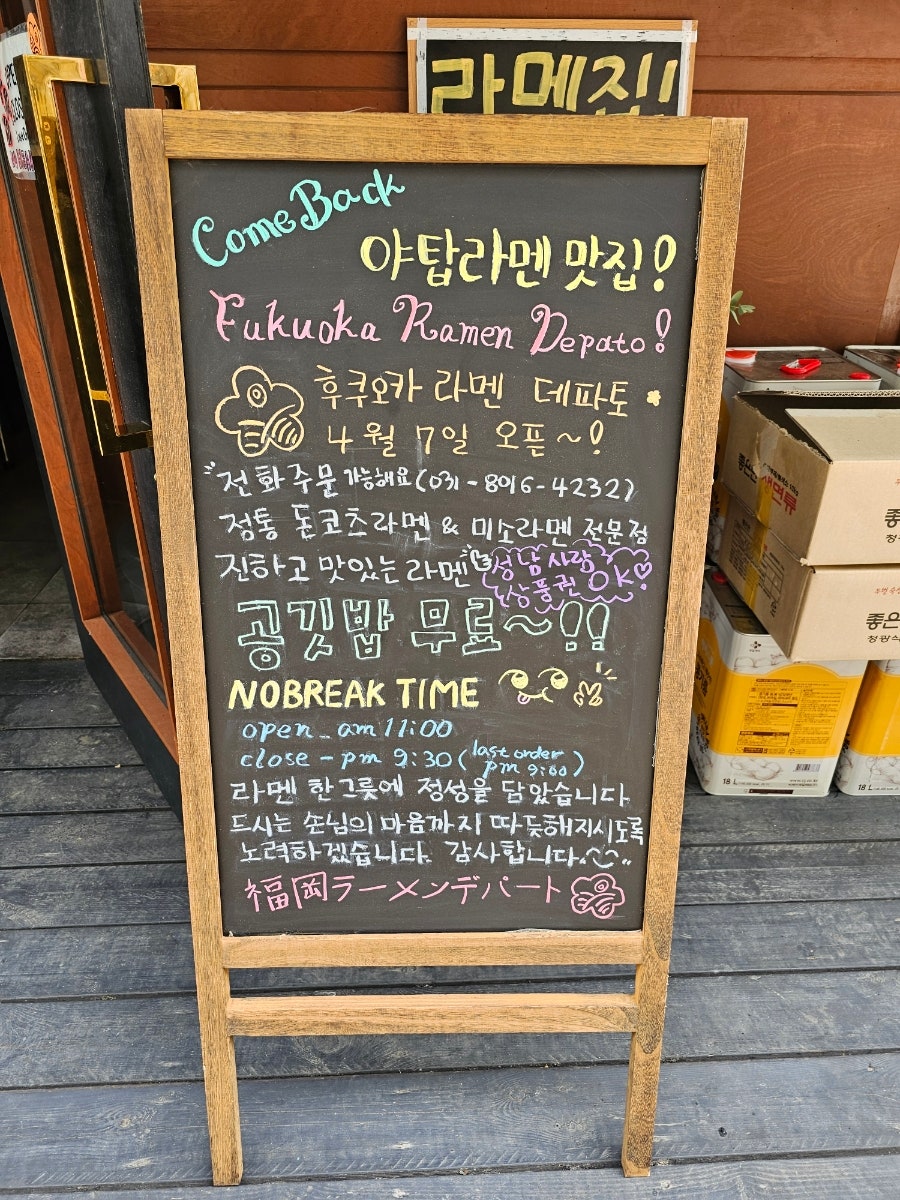 라멘집!
Come Back
야탑라멘 맛집!
Fukuoka Ramen Depato!
후쿠오카 라멘 데파토
4월 7일 오픈~!
전화주문 가능해요 (031-8016-4232)
정통 돈코츠라멘 & 미소라멘 전문점
진하고 맛있는 라멘
성남사랑
상품권 OK!
공깃밥 무료~!!
NOBREAK TIME
open_am 11:00
close - pm 9:30 (last order pm 9:00)
라멘 한그릇에 정성을 담았습니다
드시는 손님의 마음까지 따듯해지시도록
노력하겠습니다. 감사합니다.
福岡ラーメンデパート
좋은
18L